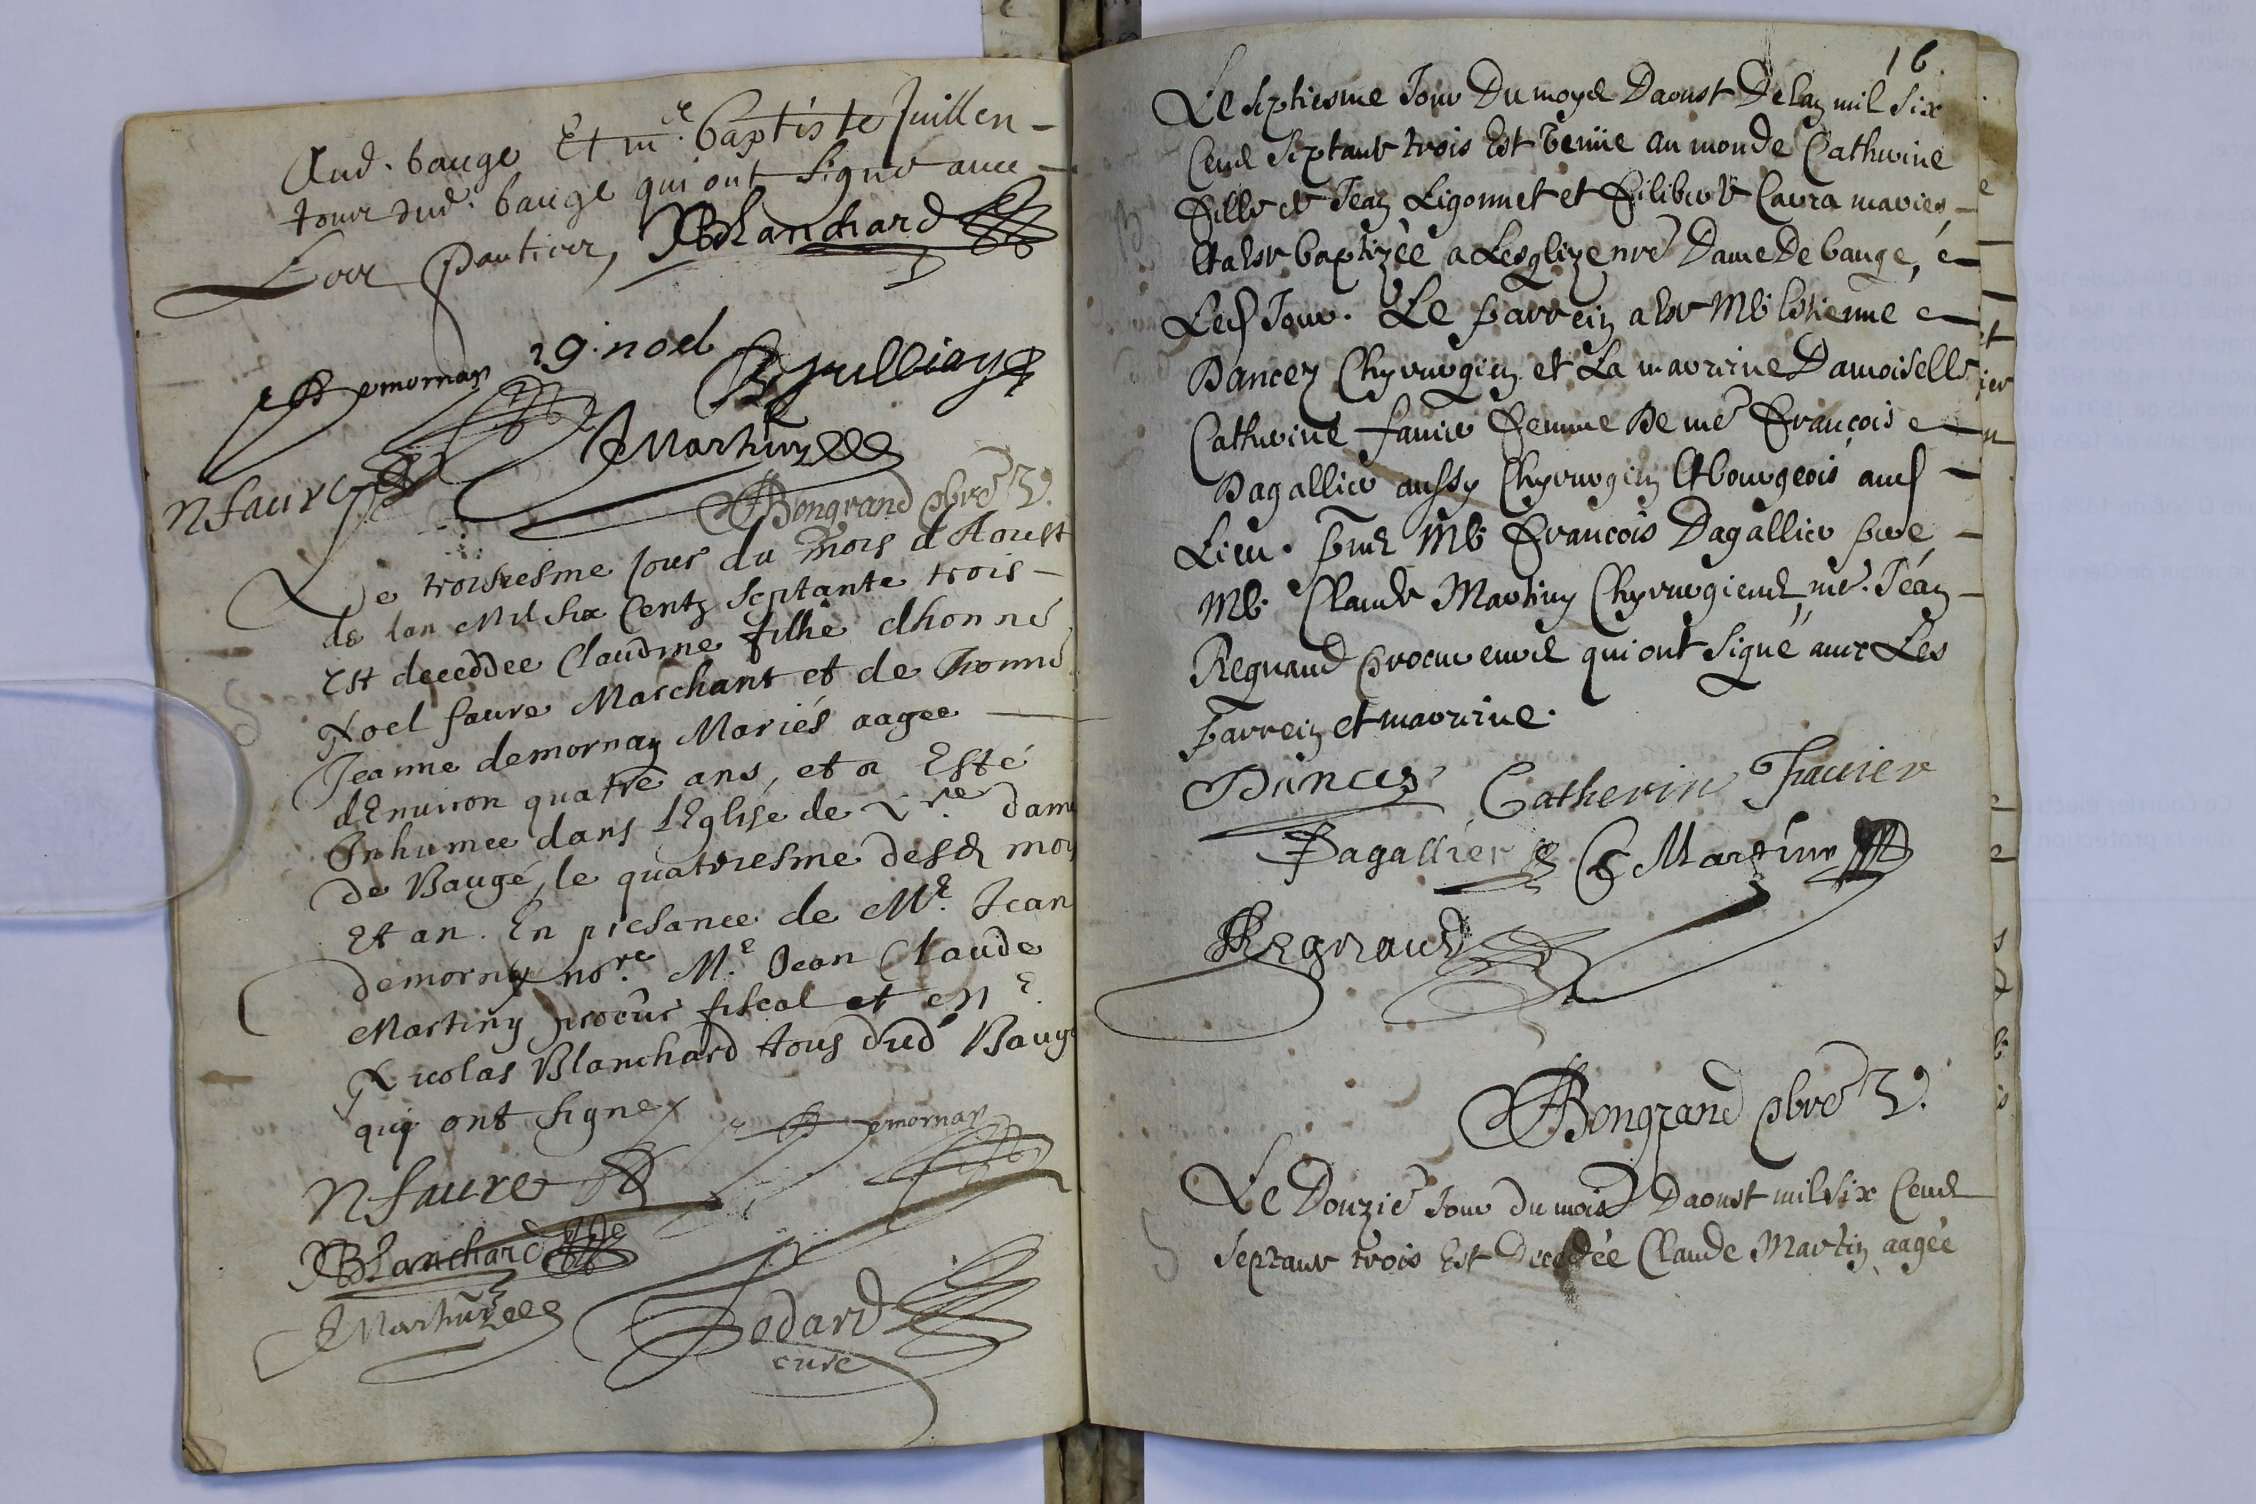 Aud. bauge Et me. baptiste Juillen -
tour dud. bauge qui ont signe avec -
Lour pautier, NBlanchard
Demornay 29. noel BJuillieng
nfaure JMartiny
ABongrand pbre V.
Le troisiesme jour du mois d'Aoust
de lan Mil Six Centz Septante trois -
Est deceddee Claudine fillie dhonne
Noel faure Marchant et de honne
Jeanne demornay Mariés aagee
dEnuiron quatre ans, et a Esté
Inhumee dans lEglise de Nre dame
de Baugé, le quatriesme desd mois
Et an. En presance de Mr. Jean
demornay nore Me. Jean Claude
Martiny procur fiscal et
Nicolas Blanchard tous dud Baugé
qui ont signe
Demornay
Nfaure
NBlanchard
JMartiny
Bodard
cure
16.
Le septiesme Jour Du moys Daoust De lan mil six
Cens septante trois Est venüe au monde Catherine
fille de Jean Ligonnet et filiberte Caura maries -
Et a este baptizée a Lesglize nre Dame De bauge,
Led Jour. Le parrein a este Me Estienne
Dancey Chyrurgien et La marrine Damoiselle
Catherine favier femme De me françois
Dagallier aussy Chyrurgien Et bourgeois aud -
Lieu. pnts Me françois Dagallier pere -
Me. Claude Martiny Chyrurgiens, me. Jean -
Regnaud procureurs qui ont signé avec Les
parrein et marrine.
Dancey Catherine Favier
Dagallier C Martiny
Regnaud
ABongrand pbre V.
Le Douzie Jour du mois Daoust mil six Cens
septante trois Est Decedée Claude Martin aagée